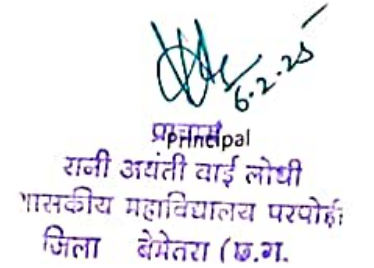 6.2.25
प्राचार्य
Principal
रानी अवंती बाई लोधी
शासकीय महाविद्यालय परपोड़ी
जिला बेमेतरा (छ.ग.